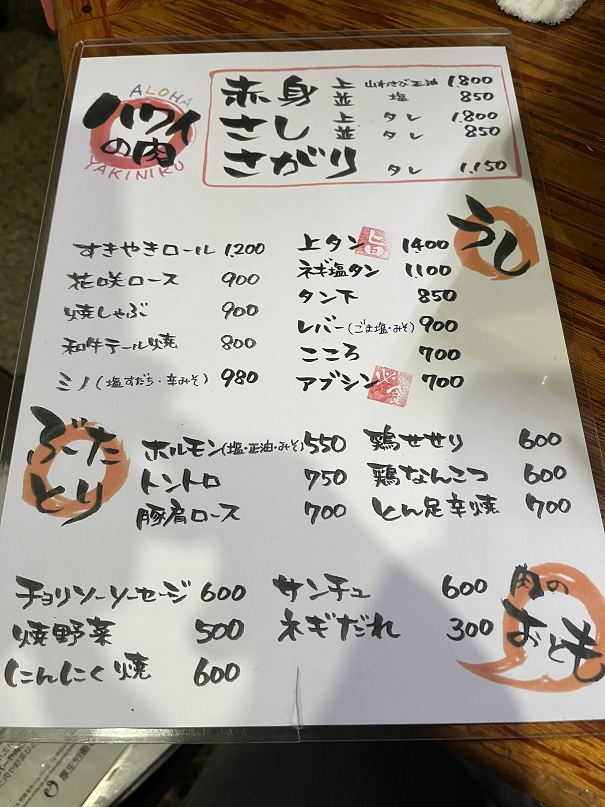 ALOHA
ハワイの肉
YAKINIKU
赤身 上 山わさび正油 1.800
並 塩 850
さし 上 タレ 1.800
並 タレ 850
さがり タレ 1.150
うし
すきやきロール 1.200
花咲ロース 900
焼しゃぶ 900
和牛テール焼 800
ミノ(塩すだち・辛みそ) 980
上タン 1400
ネギ塩タン 1100
タン下 850
レバー(ごま塩・みそ) 900
こころ 700
アブシン 700
ぶた
とり
ホルモン(塩・正油・みそ) 550
トントロ 750
豚肩ロース 700
鶏せせり 600
鶏なんこつ 600
とん足辛焼 700
チョリソーソーセージ 600
焼野菜 500
にんにく焼 600
サンチュ 600
ネギだれ 300
肉の
おとも